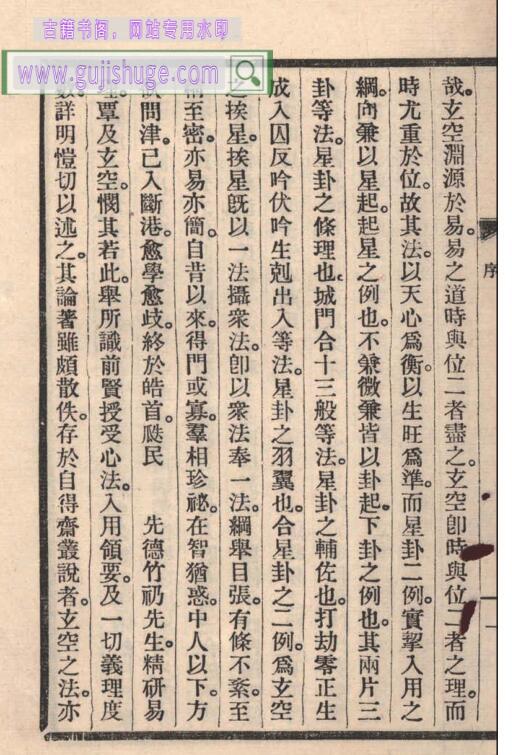 古籍书阁，网站专用水印
www.gujishuge.com
序
哉。玄空淵源於易。易之道時與位二者盡之。玄空卽時與位二者之理。而
時尤重於位。故其法。以天心爲衡。以生旺爲準。而星卦二例。實挈入用之
綱。向兼以星起。起星之例也。不兼微兼皆以卦起。下卦之例也。其兩片三
卦等法。星卦之條理也。城門合十三般等法。星卦之輔佐也。打劫零正生
成入囚反吟伏吟生剋出入等法。星卦之羽翼也。合星卦之二例。爲玄空
之挨星。挨星旣以一法攝衆法。卽以衆法奉一法。綱舉目張。有條不紊。至
至密。亦易亦簡。自昔以來。得門或寡。羣相珍祕。在智猶惑。中人以下。方
問津。已入斷港。愈學愈歧。終於皓首。 民 先德竹礽先生。精研易
覃及玄空。憫其若此。舉所識前賢授受心法。入用領要。及一切義理度
數。詳明愷切以述之。其論著雖頗散佚。存於自得齋叢說者。玄空之法。亦